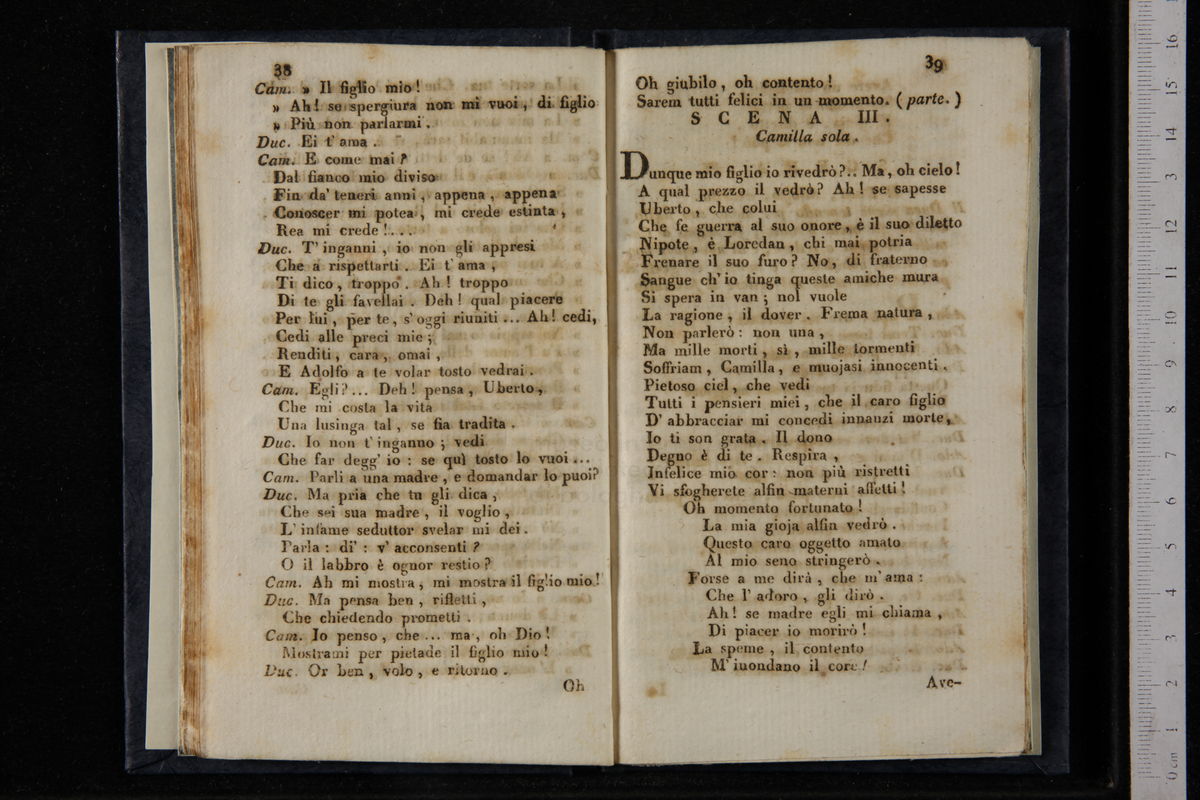 38
Cam. » Il figlio mio !
» Ah ! se spergiura non mi vuoi , di figlio
» Più non parlarmi .
Duc. Ei t' ama .
Cam. E come mai ?
Dal fianco mio diviso
Fin da' teneri anni , appena , appena
Conoscer mi potea , mi crede estinta ,
Rea mi crede !...
Duc. T' inganni , io non gli appresi
Che a rispettarti . Ei t' ama ,
Ti dico , troppo . Ah ! troppo
Di te gli favellai . Deh ! qual piacere
Per lui , per te , s' oggi riuniti ... Ah! cedi,
Cedi alle preci mie ;
Renditi , cara , omai ,
E Adolfo a te volar tosto vedrai .
Cam. Egli ?... Deh ! pensa , Uberto ,
Che mi costa la vita
Una lusinga tal , se fia tradita .
Duc. Io non t' inganno ; vedi
Che far degg' io : se quì tosto lo vuoi ...
Cam. Parli a una madre , e domandar lo puoi?
Duc. Ma pria che tu gli dica ,
Che sei sua madre , il voglio ,
L' infame seduttor svelar mi dei .
Parla : di' : v' acconsenti ?
O il labbro è ognor restio ?
Cam. Ah mi mostra , mi mostra il figlio mio !
Duc. Ma pensa ben , rifletti ,
Che chiedendo prometti .
Cam. Io penso , che ... ma , oh Dio !
Mostrami per pietade il figlio mio !
Duc. Or ben , volo , e ritorno .
Oh
39
Oh giubilo , oh contento !
Sarem tutti felici in un momento. ( parte. )
SCENA III .
Camilla sola .
Dunque mio figlio io rivedrò ?.. Ma , oh cielo !
A qual prezzo il vedrò ? Ah ! se sapesse
Uberto , che colui
Che fe guerra al suo onore , è il suo diletto
Nipote , è Loredan , chi mai potria
Frenare il suo furo ? No , di fraterno
Sangue ch' io tinga queste amiche mura
Si spera in van ; nol vuole
La ragione , il dover . Frema natura ,
Non parlerò : non una ,
Ma mille morti , sì , mille tormenti
Soffriam , Camilla , e muojasi innocenti .
Pietoso ciel , che vedi
Tutti i pensieri miei , che il caro figlio
D' abbracciar mi concedi innanzi morte ,
Io ti son grata . Il dono
Degno è di te . Respira ,
Infelice mio cor : non più ristretti
Vi sfogherete alfin materni affetti !
Oh momento fortunato !
La mia gioja alfin vedrò .
Questo caro oggetto amato
Al mio seno stringerò .
Forse a me dirà , che m' ama :
Che l' adoro , gli dirò .
Ah ! se madre egli mi chiama ,
Di piacer io morirò !
La speme , il contento
M' inondano il core !
Ave-
0 cm 1 2 3 4 5 6 7 8 9 10 11 12 13 14 15 16